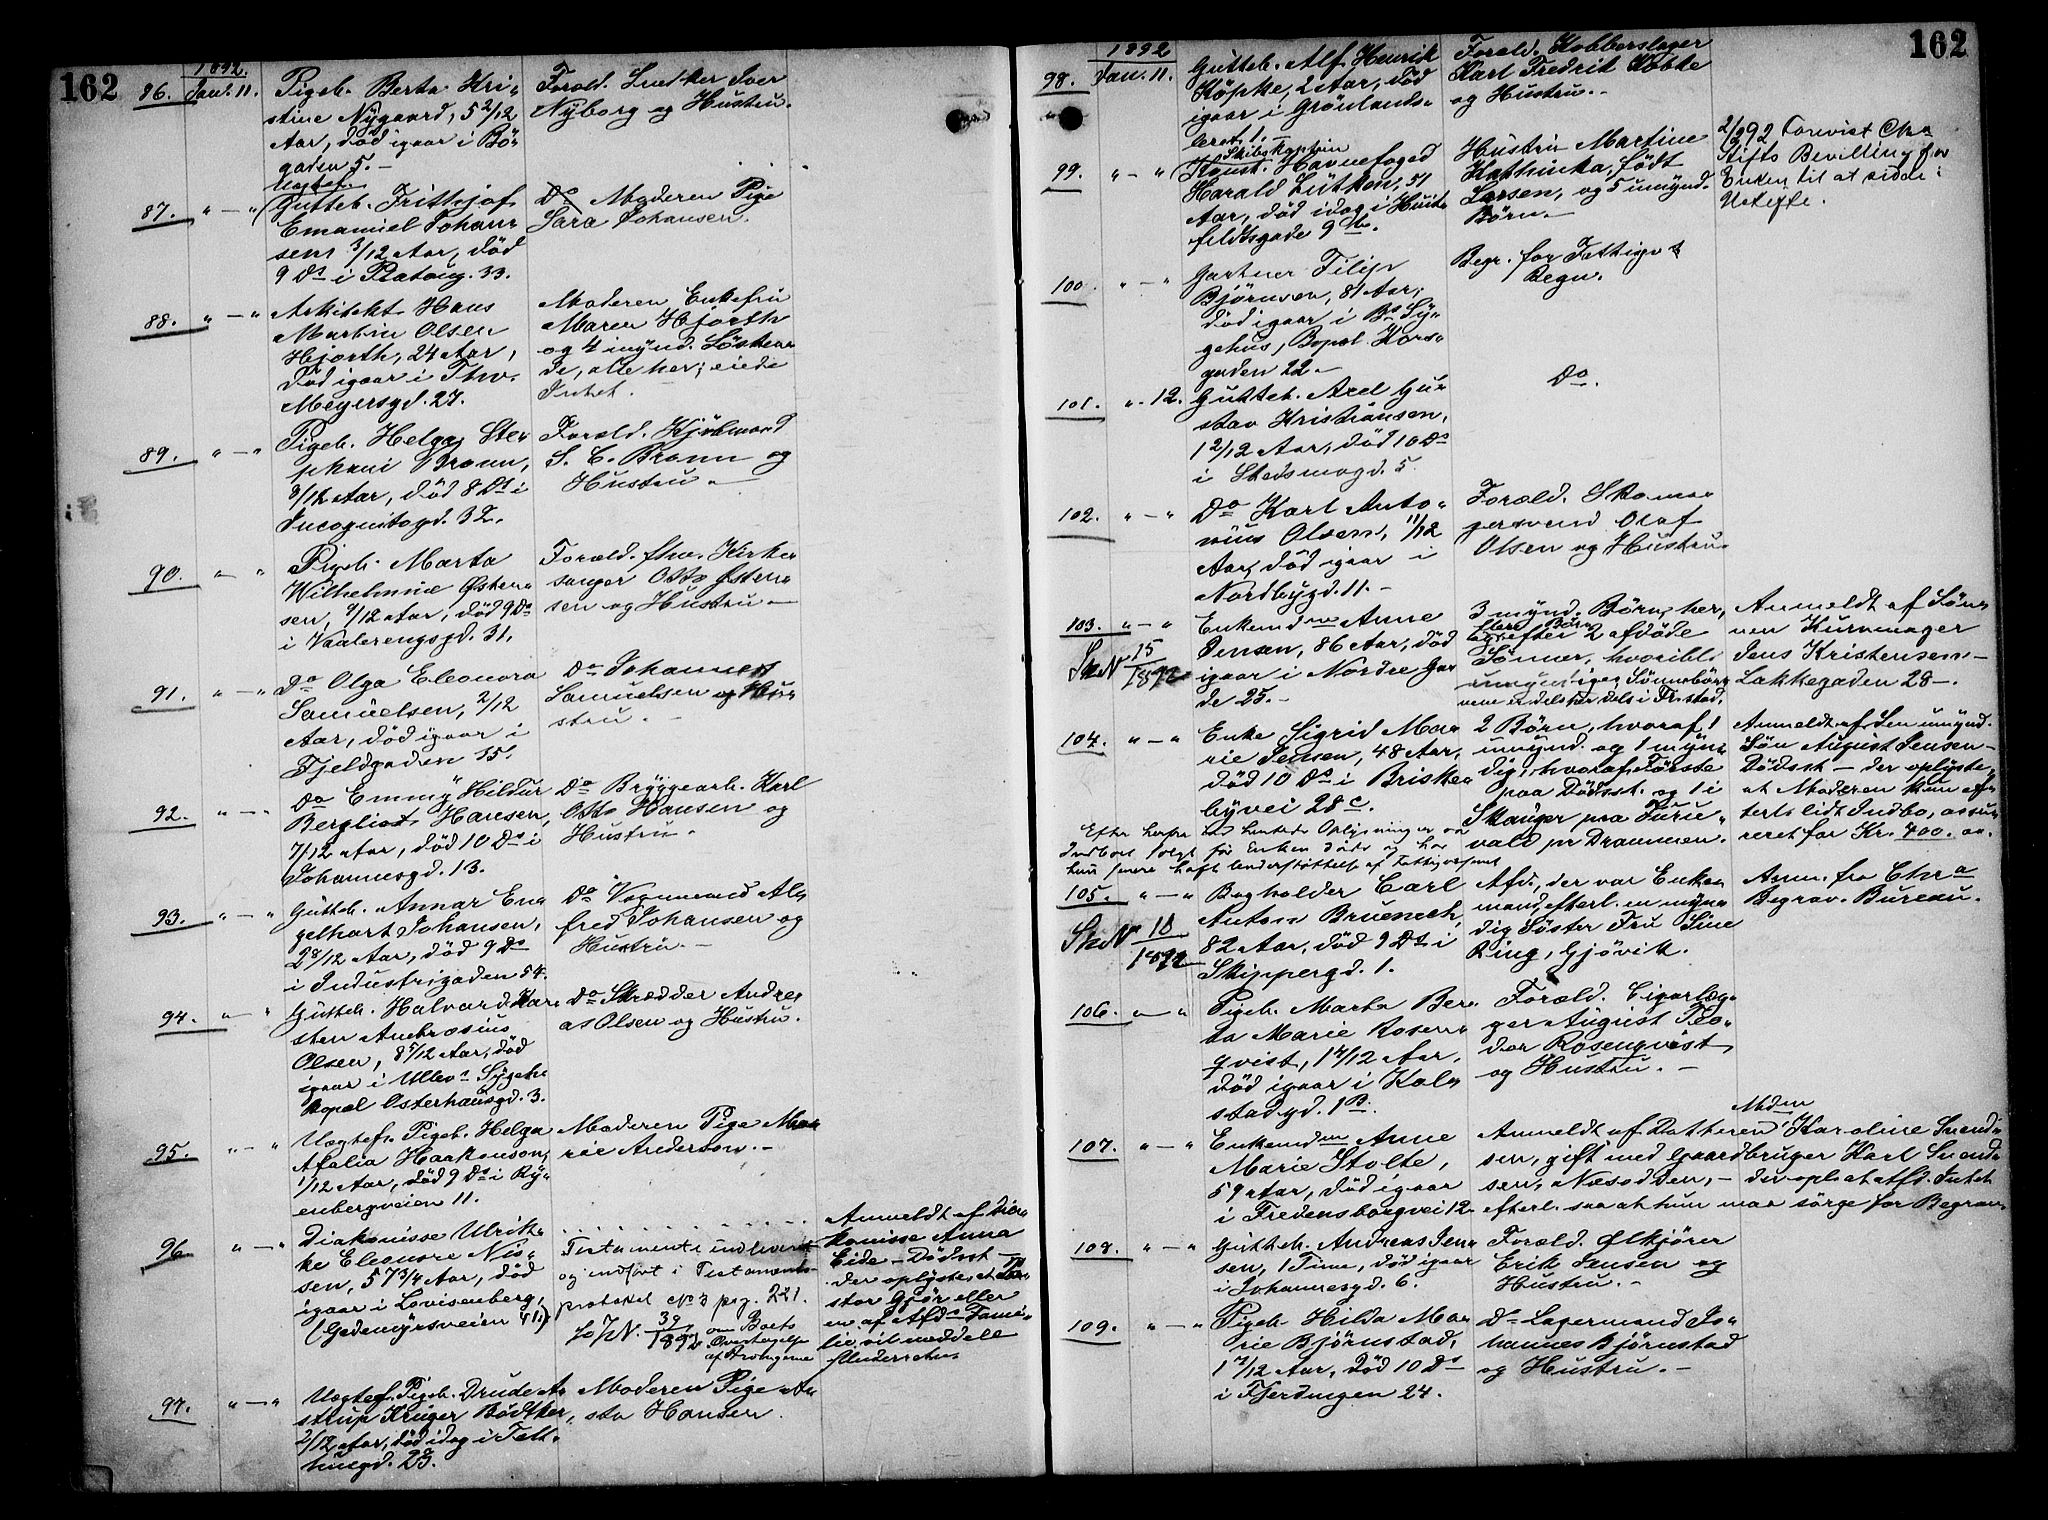 162
1892.
86. Jan. 11. Pigeb. Berta Kri-
stine Nygaard, 5 2/12
Aar, död igaar i Bö-
gaden 5. -
Foræld. Snedker Iver
Nyborg og Hustru.
Uægtef.
87. " - " Gutteb. Frithjof
Emanuel Johan-
sen 3/12 Aar, död
9 Ds i Platoug. 33.
Do Moderen Pige
Sara Johansen.
88. " - " Arkitekt Hans
Martin Olsen
Hjorth, 24 Aar,
död igaar i Thv.
Meyersgd. 27.
Moderen Enkefru
Maren Hjorth
og 4 imynd. Sösken-
de, alle her; eiede
Intet.
89. " - " Pigeb. Helga Ste-
phani Bronn,
8/12 Aar, död 8 Ds i
Incognitogd. 32.
Foræld. Kjöbmand
S. C. Bronn og
Hustru. -
90. " - " Pigeb. Marta
Wilhelmine Østen-
sen, 9/12 Aar, död 9 Ds
i Vaalerengsgd. 31.
Foræld. fhv. Kirke-
sanger Otto Østen-
sen og Hustru. -
91. " - " Do Olga Eleonora
Samuelsen, 2/12
Aar, död igaar i
Fjeldgaden 15.
Do Johannes
Samuelsen og Hu-
stru. -
92. " - " Do Emmy Hildur
Bergliot Hansen,
7/12 Aar, död 10 Ds i
Johannesgd. 13.
Do Bryggearb. Karl
Otto Hansen og
Hustru.
93. " - " Gutteb. Annar En-
gelhart Johansen,
2 8/12 Aar, död 9 Ds
i Industrigaden 54.
Do Vognmand Al-
fred Johansen og
Hustru. -
94. " - " Gutteb. Halvard Kar-
sten Ambrosius
Olsen, 8 5/12 Aar, död
igaar i Ullev. Sygeh.
Bopæl Osterhausgd. 3.
Do Skrædder Andre-
as Olsen og Hustru.
95. " - " Uægtef. Pigeb. Helga
Afalia Haakonson,
1/12 Aar, död 9 Ds i Ry-
enbergveien 11.
Moderen Pige Ma-
rie Anderson. -
96. " - " Diakonisse Ulrik-
ke Eleonore Nis-
sen, 57 3/4 Aar, död
igaar i Lovisenberg,
(Gedemyrsveien 41.)
Testamente indleveret
og indfört i Testaments-
protokol No 3 pag. 221.
39
1892 om Boets
Overtagelse
af Arvingerne
Anmeldt af Dia-
konisse Anna
Eide - Dödsst -
der oplyste, at
stor Gjör eller
en af Afds Fami-
lie vil meddele
97. " - " Uægtef. Pigeb. Drude A-
strup Krüger Bödtker,
2/12 Aar, död idag i Telt-
husgd. 23.
Moderen Pige
sta Hansen.
162
1892
98. Jan. 11. Gutteb. Alf Henrik
Köpke, 2 Aar, död
igaar i Grönlands-
leret 1. -
Foræld. Kobberslager
Karl Fredrik Köbke
og Hustru. -
Skibskaptein
99. " - " Konst. Havnefoged
Harald Lütken, 51
Aar, död idag i Huit-
feldtsgade 9 b.
Hustru Martine
Kathinka, födt
Larsen, og 5 imynd.
Börn. -
2/2 92 Forevist Chra
Stifts Bevilling for
Enken til at sidde i
Uskifte.
100. " - " Gartner Filip
Björnsen, 81 Aar,
död igaar i Bs Sy-
gehus, Bopæl Kors-
gaden 22. -
Begr. for Fattigv.s
Regn.
101. " - 12. Gutteb. Axel Gu-
stav Kristiansen,
1 2/12 Aar, död 10 Ds
i Stedsmogd. 5.
Do.
102. " - " Do Karl Anto-
nius Olsen, 11/12
Aar, död igaar i
Nordbygd. 11. -
Foræld. Skoma-
gersvend Olaf
Olsen og Hustru.
103. " - " Enkemdme Anne
Jensen, 86 Aar, död
igaar i Nordre Ga-
de 25. -
15
1892
3 mynd. Börn, her,
flere Börn
efter 2 afdöde
Sönner, hvoribl.
umyndiger, Sönnebörn-
ene er dels her dels i Fr.stad.
Anmeldt af Sön-
nen Kurvmager
Jens Kristensen -
Lakkegaden 28 -.
104. " - " Enke Sigrid Ma-
rie Jensen, 48 Aar,
död 10 Ds i Briske-
byvei 28 c.
2 Börn, hvoraf 1
umynd. og 1 myn-
dig, hvoraf förste
paa Dödsst. og 1 i
Skauger pra Furu-
vald pr Drammen.
Anmeldt af Sen umynd.
Sön August Jensen -
Dödsst - der oplyste,
at Moderen kun efter-
lod lidt Indbo, assu-
reret for Kr. 400. 00.
Efter herfra hentede Oplysninger var
Indboet solgt för Enken döde og har
hun senere havt Understöttelse af Fattigvæsenet
105. " - " Bogholder Carl
Anton Bruenech,
82 Aar, död 9 Ds i
Skippergd. 1.
10
1892
Afd., der var Enke-
mand, efterl. en myn-
dig Söster Fru Sine
Ring, Gjövik.
Anm. fra Chra
Begrav. Bureau.
106. " - " Pigeb. Marta Ber-
ta Marie Rosen-
qvist, 1 4/12 Aar,
död igaar i Kol-
stadgd. 1 B.
Foræld. Cigarlæg-
ger August Teo-
dor Rosenqvist
og Hustru. -
107. " - " Enkemdme Anne
Marie Stolte,
59 Aar, död igaar
i Fredensborgvei 12.
Mdme
Anmeldt af Datteren Karoline Svend-
sen, gift med Gaardbruger Karl Svend-
sen, Næsodden, - der opl. at Afd. Intet
efterl. saa at hun maa sörge for Begrav.
108. " - " Gutteb. Andreas Jen-
sen, 1 Time, död igaar
i Johannesgd. 6.
Foræld. Ølkjörer
Erik Jensen og
Hustru. -
109. " - " Pigeb. Hilda Ma-
rie Björnstad,
1 7/12 Aar, död 10 Ds
i Fjerdingen 24.
Do Lagermand Jo-
hannes Björnstad
og Hustru. -